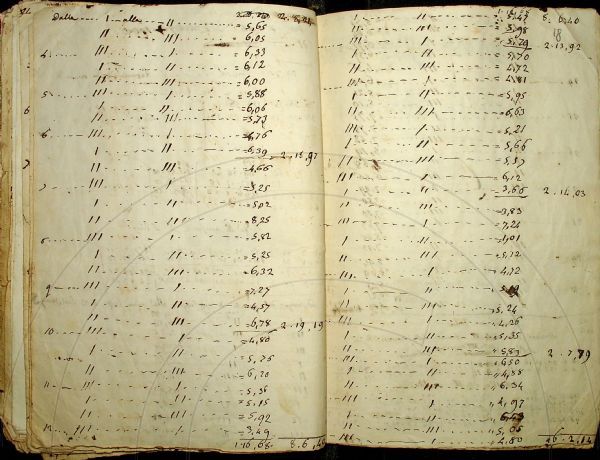 Dalle I alle II
II III = 5,65
III I = 6,05
I II = 6,33
II III = 6,12
III I = 6,00
5 I II = 5,88
6 I II = 6,06
II III = 5,73
6 III I = 4,76
I II = 6,39 2.15,97
7 II III = 4,66
7 III I = 3,25
I II = 5,02
II III = 8,25
III I = 5,82
I II = 5,25
II III = 6,32
9 III I = 7,27
I II = 4,57
II III = 6,78 2.19,19
10 III I = 4,80
I II = 5,75
II III = 6,20
11 III I = 5,35
I II = 5,15
II III = 5,92
III I = 3,49
1.16,68 8.6,40
8.6,40
18
I II = 5,47
II III = 5,98
III I = 5,29 2.13,92
I II = 5,70
II III = 4,72
III I = 4,81
I II = 5,95
II III = 6,63
III I = 5,21
I II = 5,66
II III = 5,57
III I = 6,12
I II = 3,66 2.14,03
II III = 3,83
III I = 7,24
I II
II III = 5,12
III I = 4,72
I II
II III = 5,24
III I = 4,26
I II = 5,35
II III = 5,89 2.7,79
III I = 6,50
I II = 4,88
II III = 6,34
III I = 4,97
I II
II III = 5,05
III I = 4,80